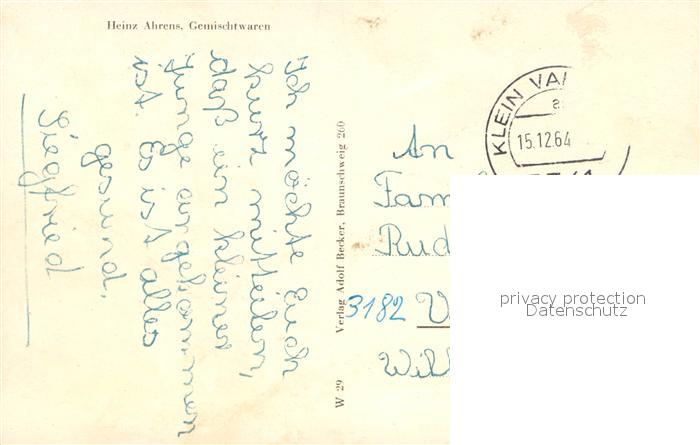 Heinz Ahrens, Gemischtwaren
Ich möchte Euch
kurz mitteilen,
daß ein kleiner
Junge angekommen
ist. Es ist alles
gesund.
Siegfried
W 29 Verlag Adolf Becker, Braunschweig 260
KLEIN VA
15.12.64
An
Fam
Rud
3182 V
Will
privacy protection
Datenschutz